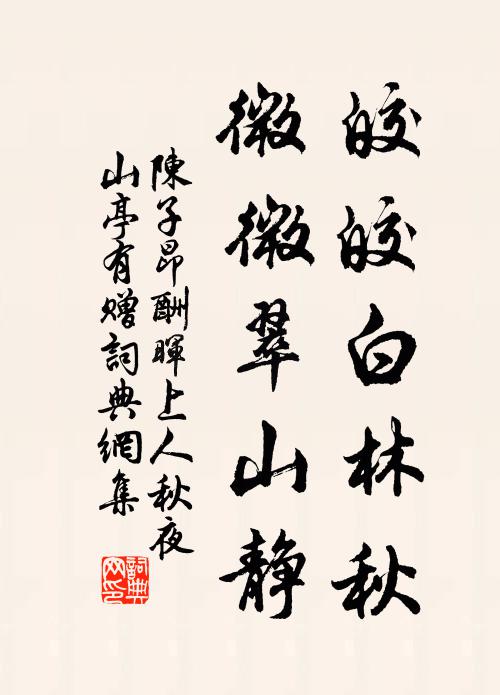 皎皎白林秋
微微翠山静
陳子昂酬暉上人秋夜
山亭有贈詞典網集
詞典
网印